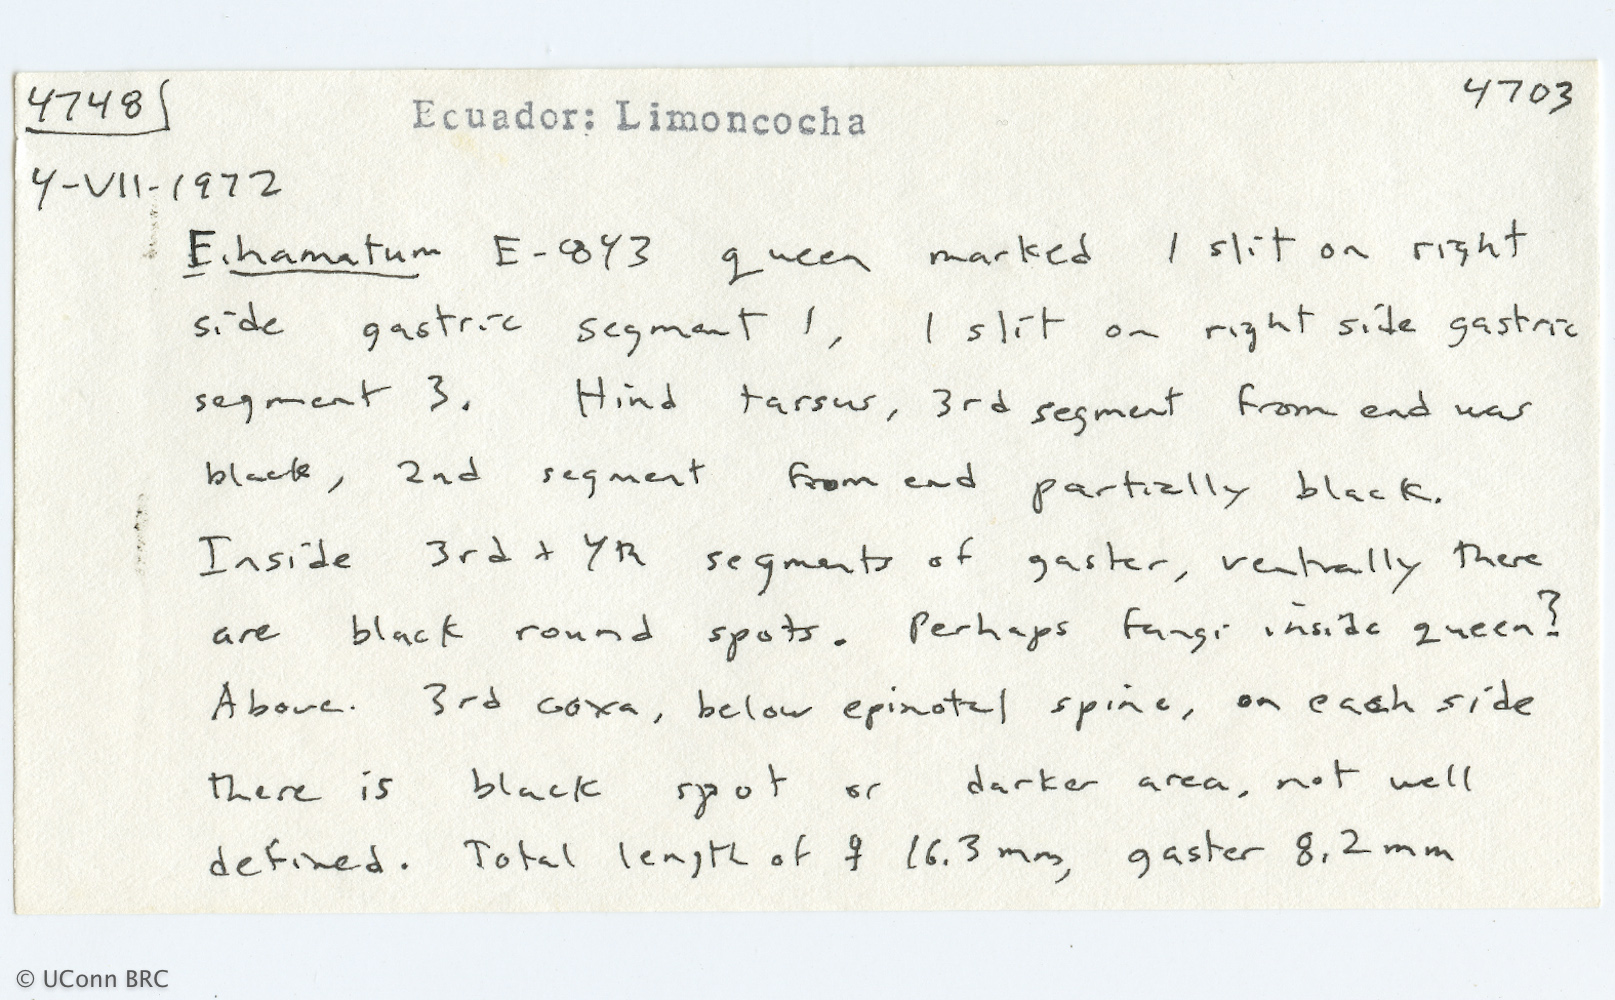 4748
Ecuador: Limoncocha
4703
4-VII-1972
E. hamatum E-843 queen marked 1 slit on right
side gastric segment 1, 1 slit on right side gastric
segment 3. Hind tarsus, 3rd segment from end was
black, 2nd segment from end partially black.
Inside 3rd + 4th segments of gaster, ventrally there
are black round spots. Perhaps fungi inside queen?
Above. 3rd coxa, below epinotal spine, on each side
there is black spot or darker area, not well
defined. Total length of ♀ 16.3 mm, gaster 8.2 mm
© UConn BRC